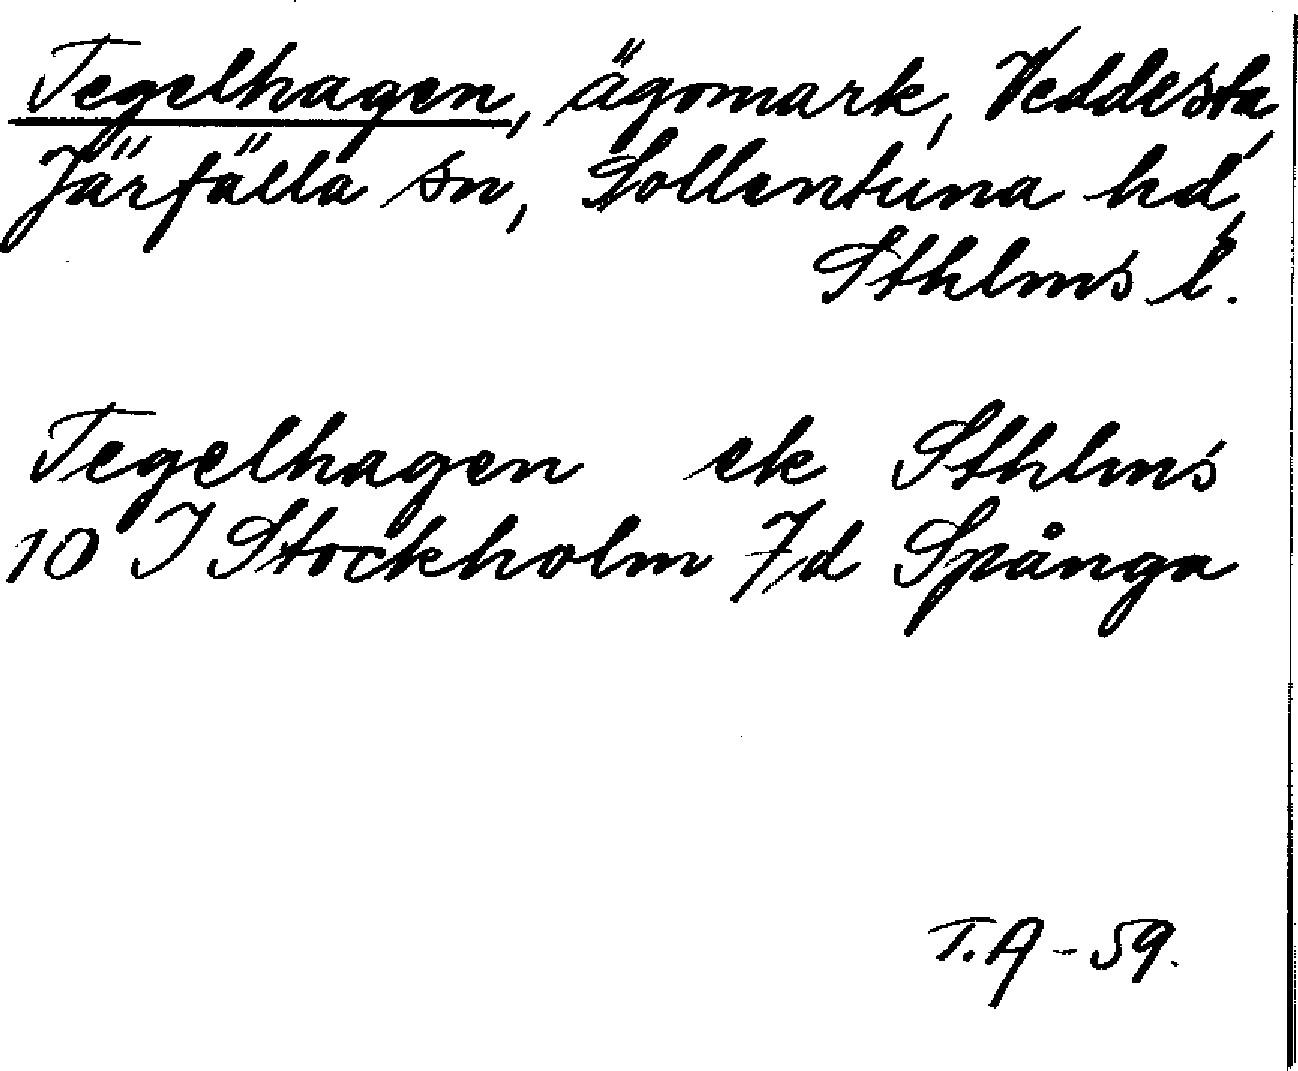 Tegelhagen, ägomark, Veddesta,
Järfälla sn, Sollentuna hd,
Sthlms l.
Tegelhagen ek Sthlms
10 I Stockholm 7d Spånga
T.A-59.